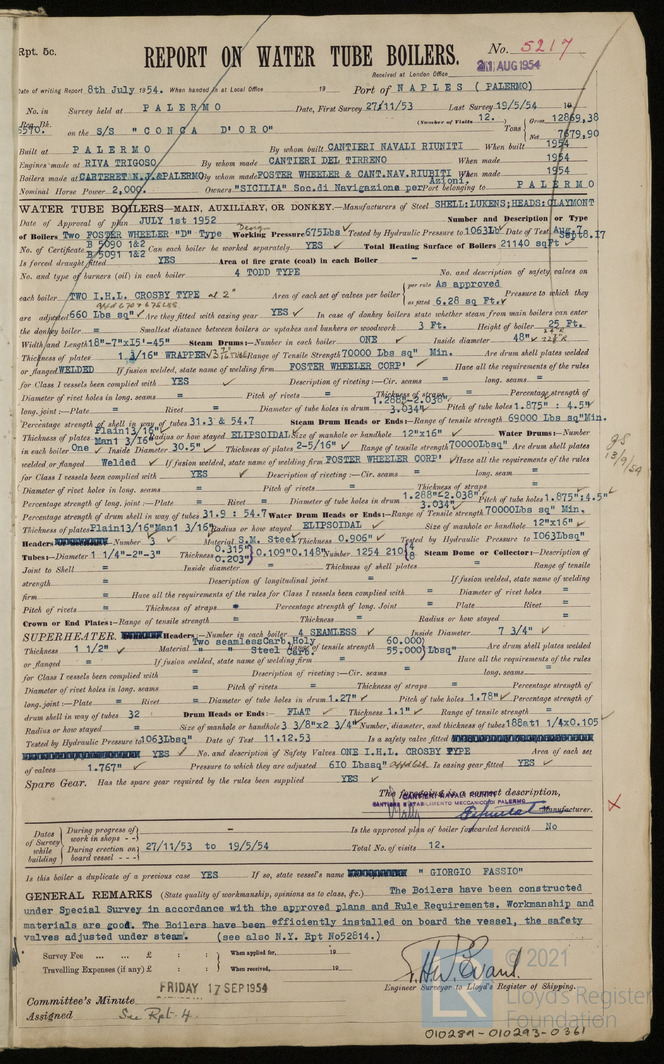 Rpt. 5c.
REPORT ON WATER TUBE BOILERS.
No. 5217
21 AUG 1954
Received at London Office
Date of writing Report 8th July 1954. When handed in at Local Office 19 Port of NAPLES ( PALERMO)
No. in Survey held at PALERMO Date, First Survey 27/11/53 Last Survey 19/5/54 19
Reg. Bk. (Number of Visits 12.
on the S/S "CONCA D'ORO" Tons Gross 12869,38
Net 7679,90
Built at PALERMO By whom built CANTIERI NAVALI RIUNITI When built 1954
Engines made at RIVA TRIGOSO By whom made CANTIERI DEL TIRRENO When made 1954
Boilers made at CARTERET N.J.&PALERMO By whom made FOSTER WHEELER & CANT.NAV.RIUBITI When made 1954
Nominal Horse Power 2,000. Owners "SICILIA" Soc.di Navigazione per Azioni. Port belonging to PALERMO
WATER TUBE BOILERS—MAIN, AUXILIARY, OR DONKEY.—Manufacturers of Steel SHELL:LUKENS;HEADS:CLAYMONT
Date of Approval of plan JULY 1st 1952 Number and Description or Type
of Boilers Two FOSTER WHEELER "D" Type Working Pressure 675Lbs Tested by Hydraulic Pressure to 1063Lb Date of Test Aug.7
Sept8.17
No. of Certificate B 5090 1&2 Can each boiler be worked separately. YES Total Heating Surface of Boilers 21140 sqFt
B 5091 1&2
Is forced draught fitted YES Area of fire grate (coal) in each Boiler -
No. and type of burners (oil) in each boiler 4 TODD TYPE No. and description of safety valves on
each boiler TWO I.H.L. CROSBY TYPE at 2" Area of each set of valves per boiler per rule As approved
as fitted 6.28 sq Ft. Pressure to which they
are adjusted 660 Lbs sq" Are they fitted with easing gear YES In case of donkey boilers state whether steam from main boilers can enter
the donkey boiler = Smallest distance between boilers or uptakes and bunkers or woodwork 3 Ft. Height of boiler 25 Ft.
Width and Length 18"-7"x15'-45" Steam Drums:—Number in each boiler ONE Inside diameter 48"
Thickness of plates 1 3/16" WRAPPER Range of Tensile Strength 70000 Lbs sq" Min. Are drum shell plates welded
or flanged WELDED If fusion welded, state name of welding firm FOSTER WHEELER CORP' Have all the requirements of the rules
for Class I vessels been complied with YES Description of riveting:—Cir. seams = long. seams =
Diameter of rivet holes in long. seams = Pitch of rivets = Thickness of straps = Percentage strength of
long. joint:—Plate = Rivet = Diameter of tube holes in drum 1.288"-2.038" 3.034" Pitch of tube holes 1.875" : 4.5"
Percentage strength of shell in way of tubes 31.3 & 54.7 Steam Drum Heads or Ends:—Range of tensile strength 69000 Lbs sq"Min.
Thickness of plates Plain13/16" Man1 3/16" Radius or how stayed ELIPSOIDAL Size of manhole or handhole 12"x16" Water Drums:—Number
in each boiler One Inside Diameter 30.5" Thickness of plates 2-5/16" Range of tensile strength 70000Lbsq" Are drum shell plates
welded or flanged Welded If fusion welded, state name of welding firm FOSTER WHEELER CORP' Have all the requirements of the rules
for Class I vessels been complied with YES Description of riveting:—Cir. seams = long. seam =
Diameter of rivet holes in long. seams = Pitch of rivets = Thickness of straps =
Percentage strength of long. joint:—Plate = Rivet = Diameter of tube holes in drum 1.288"-2.038" 3.034" Pitch of tube holes 1.875":4.5"
Percentage strength of drum shell in way of tubes 31.9 : 54.7 Water Drum Heads or Ends:—Range of Tensile strength 70000Lbs sq" Min.
Thickness of plates Plain13/16"Man1 3/16" Radius or how stayed ELIPSOIDAL Size of manhole or handhole 12"x16"
Headers Number 3 Material S.M. Steel Thickness 0.906" Tested by Hydraulic Pressure to 1063Lbsq"
Tubes:—Diameter 1 1/4"-2"-3" Thickness 0.315" 0.203" 0.109"0.148" Number 1254 210 Steam Dome or Collector:—Description of
Joint to Shell = Inside diameter = Thickness of shell plates = Range of tensile
strength = Description of longitudinal joint = If fusion welded, state name of welding
firm = Have all the requirements of the rules for Class I vessels been complied with = Diameter of rivet holes =
Pitch of rivets = Thickness of straps = Percentage strength of long. Joint = Plate = Rivet =
Crown or End Plates:—Range of tensile strength = Thickness = Radius or how stayed =
SUPERHEATER. Headers:—Number in each boiler 4 SEAMLESS Inside Diameter 7 3/4"
Thickness 1 1/2" Material Two seamlessCarb.Moly " " Steel Carb. Range of tensile strength 60.000 55.000 Lbsq" Are drum shell plates welded
or flanged = If fusion welded, state name of welding firm = Have all the requirements of the rules
for Class I vessels been complied with = Description of riveting:—Cir. seams = long. seams =
Diameter of rivet holes in long. seams = Pitch of rivets = Thickness of straps = Percentage strength of
long. joint:—Plate = Rivet = Diameter of tube holes in drum 1.27" Pitch of tube holes 1.78" Percentage strength of
drum shell in way of tubes 32 Drum Heads or Ends:— FLAT Thickness 1.1" Range of tensile strength =
Radius or how stayed = Size of manhole or handhole 3 3/8"x2 3/4" Number, diameter, and thickness of tubes 188at1 1/4x0.105
Tested by Hydraulic Pressure to 1063Lbsq" Date of Test 11.12.53 Is a safety valve fitted
YES No. and description of Safety Valves ONE I.H.L. CROSBY TYPE Area of each set
of valves 1.767" Pressure to which they are adjusted 610 Lbssq" Is easing gear fitted YES
Spare Gear. Has the spare gear required by the rules been supplied YES
The foregoing is a correct description,
CANTIERI NAVALI RIUNITI
CANTIERE E STABILIMENTO MECCANICO DI PALERMO
Manufacturer.
Dates of Survey while building
During progress of work in shops - - } -
During erection on board vessel - - - } 27/11/53 to 19/5/54
Is the approved plan of boiler forwarded herewith No
Total No. of visits 12.
Is this boiler a duplicate of a previous case YES If so, state vessel's name " GIORGIO FASSIO"
GENERAL REMARKS (State quality of workmanship, opinions as to class, &c.) The Boilers have been constructed
under Special Survey in accordance with the approved plans and Rule Requirements. Workmanship and
materials are good. The Boilers have been efficiently installed on board the vessel, the safety
valves adjusted under steam. (see also N.Y. Rpt No52814.)
Survey Fee ... ... £ : : When applied for, 19
Travelling Expenses (if any) £ : : When received, 19
Engineer Surveyor to Lloyd's Register of Shipping.
Committee's Minute FRIDAY 17 SEP 1954
Assigned See Rpt. 4.
© 2021
Lloyd's Register
Foundation
010289-010293-0361